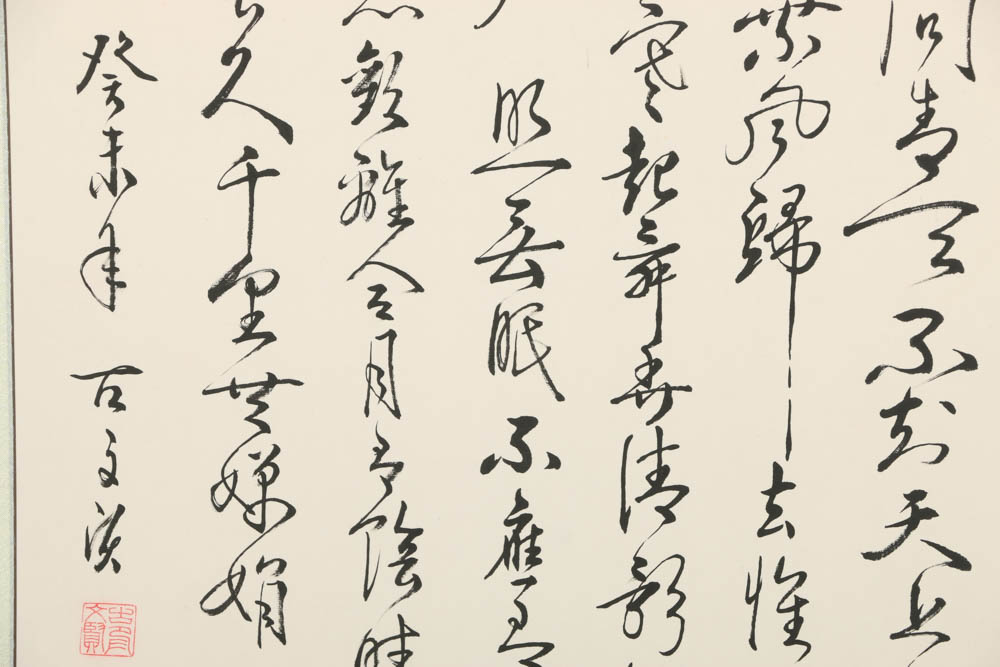 問青天不知天上
乘風歸去惟
寒起舞弄清影
照無眠不應有
歡離合月有陰晴
久千里共嬋娟
癸未年 古文賢